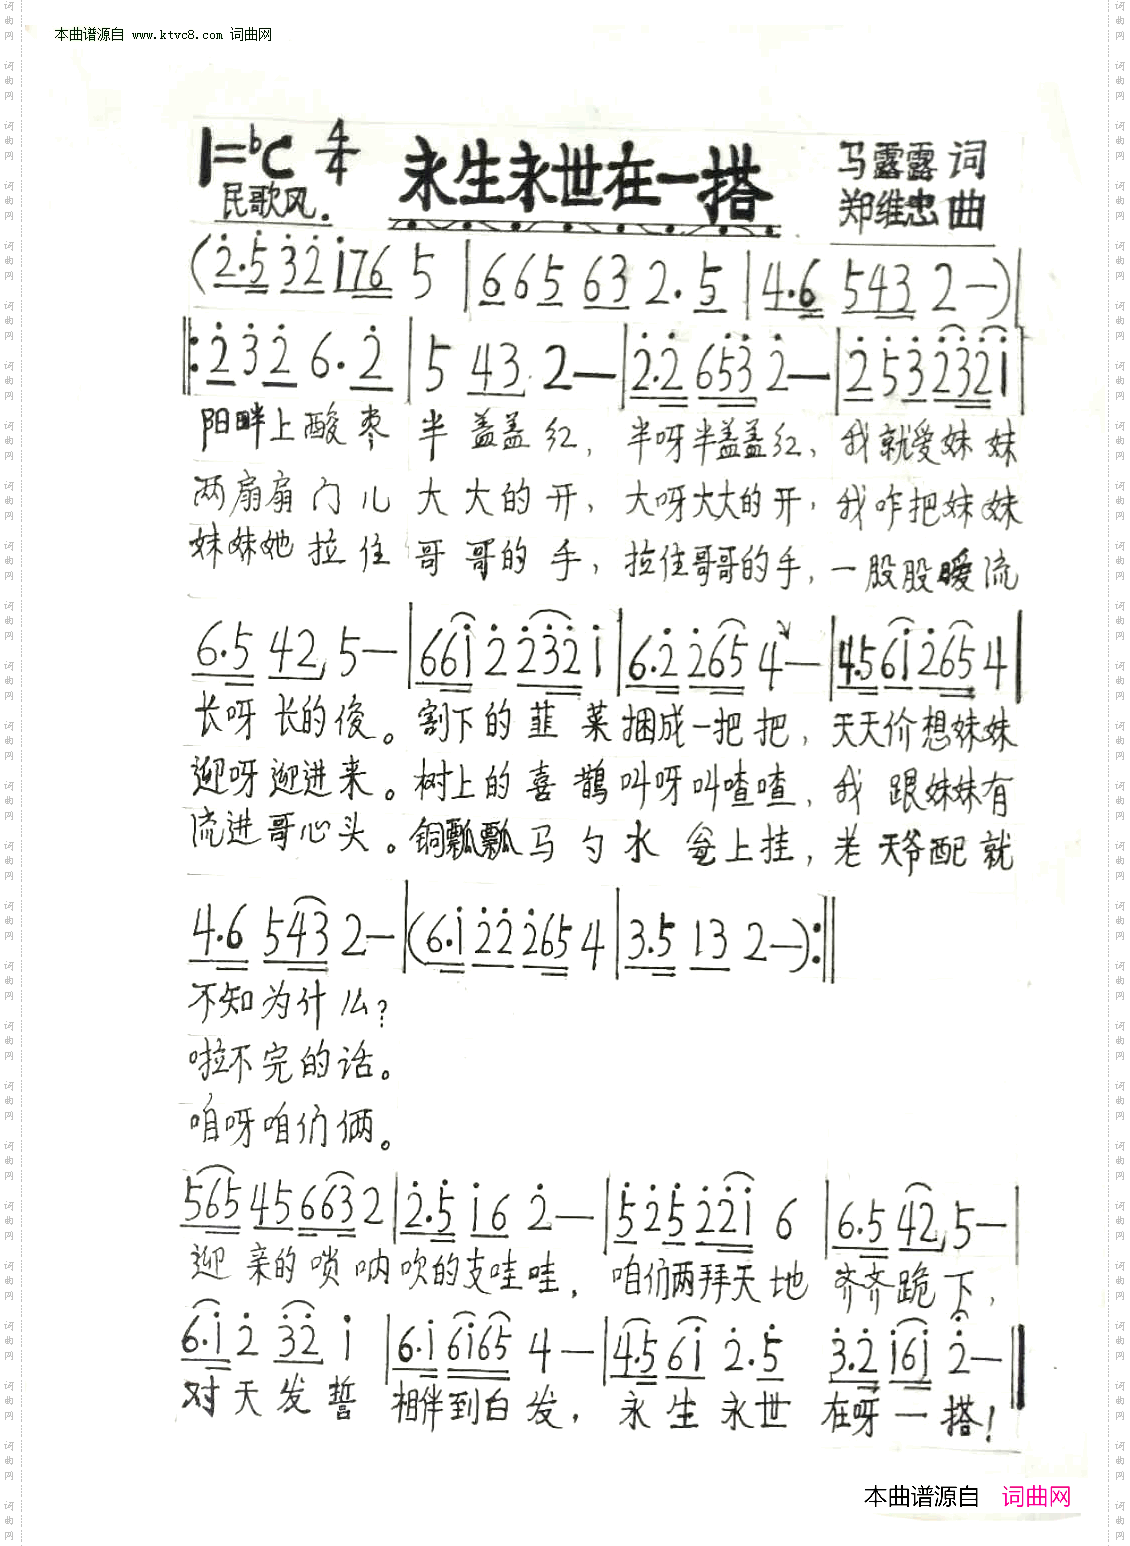 本曲谱源自 www.ktvc8.com 词曲网
1=♭C 4/4
民歌风.
永生永世在一搭
马露露 词
郑维忠 曲
(2̇.5̇ 3̇2̇ 1̇76 5 | 665 63 2.5 | 4.6 543 2—)|
‖:2̇3̇2̇ 6.2̇ | 5 43 2— | 2̇.2̇ 65̇3̇ 2̇— | 2̇5̇3̇ 2̇3̇2̇1̇ |
阳畔上酸枣 半盖盖红, 半呀半盖盖红, 我就爱妹妹
两扇扇门儿 大大的开, 大呀大大的开, 我咋把妹妹
妹妹她拉住 哥哥的手, 拉住哥哥的手, 一股股暖流
6.5 42 5— | 661̇ 2̇ 2̇3̇2̇ 1̇ | 6.2̇ 2̇65 4— | 4.5 61̇ 2̇65 4 |
长呀长的俊。割下的韮菜捆成一把把, 天天价想妹妹
迎呀迎进来。树上的喜鹊叫呀叫喳喳, 我跟妹妹有
流进哥心头。铜瓢瓢马勺水瓮上挂, 老天爷配就
4.6 543 2— |(6.1̇ 2̇2̇ 2̇65 4 | 3.5 13 2—):‖
不知为什么?
啦不完的话。
咱呀咱们俩。
565 45 663 2 | 2̇.5̇ 1̇6 2̇— | 5̇2̇5̇ 2̇2̇1̇ 6 | 6.5 42 5— |
迎亲的唢呐吹的支哇哇, 咱们两拜天地 齐齐跪下,
6.1̇ 2̇ 3̇2̇ 1̇ | 6.1̇ 61̇65 4— | 4.5 61̇ 2̇.5̇ 3̇.2̇ 1̇61̇ 2̇— ‖
对天发誓 相伴到白发, 永生永世 在呀一搭!
本曲谱源自 词曲网